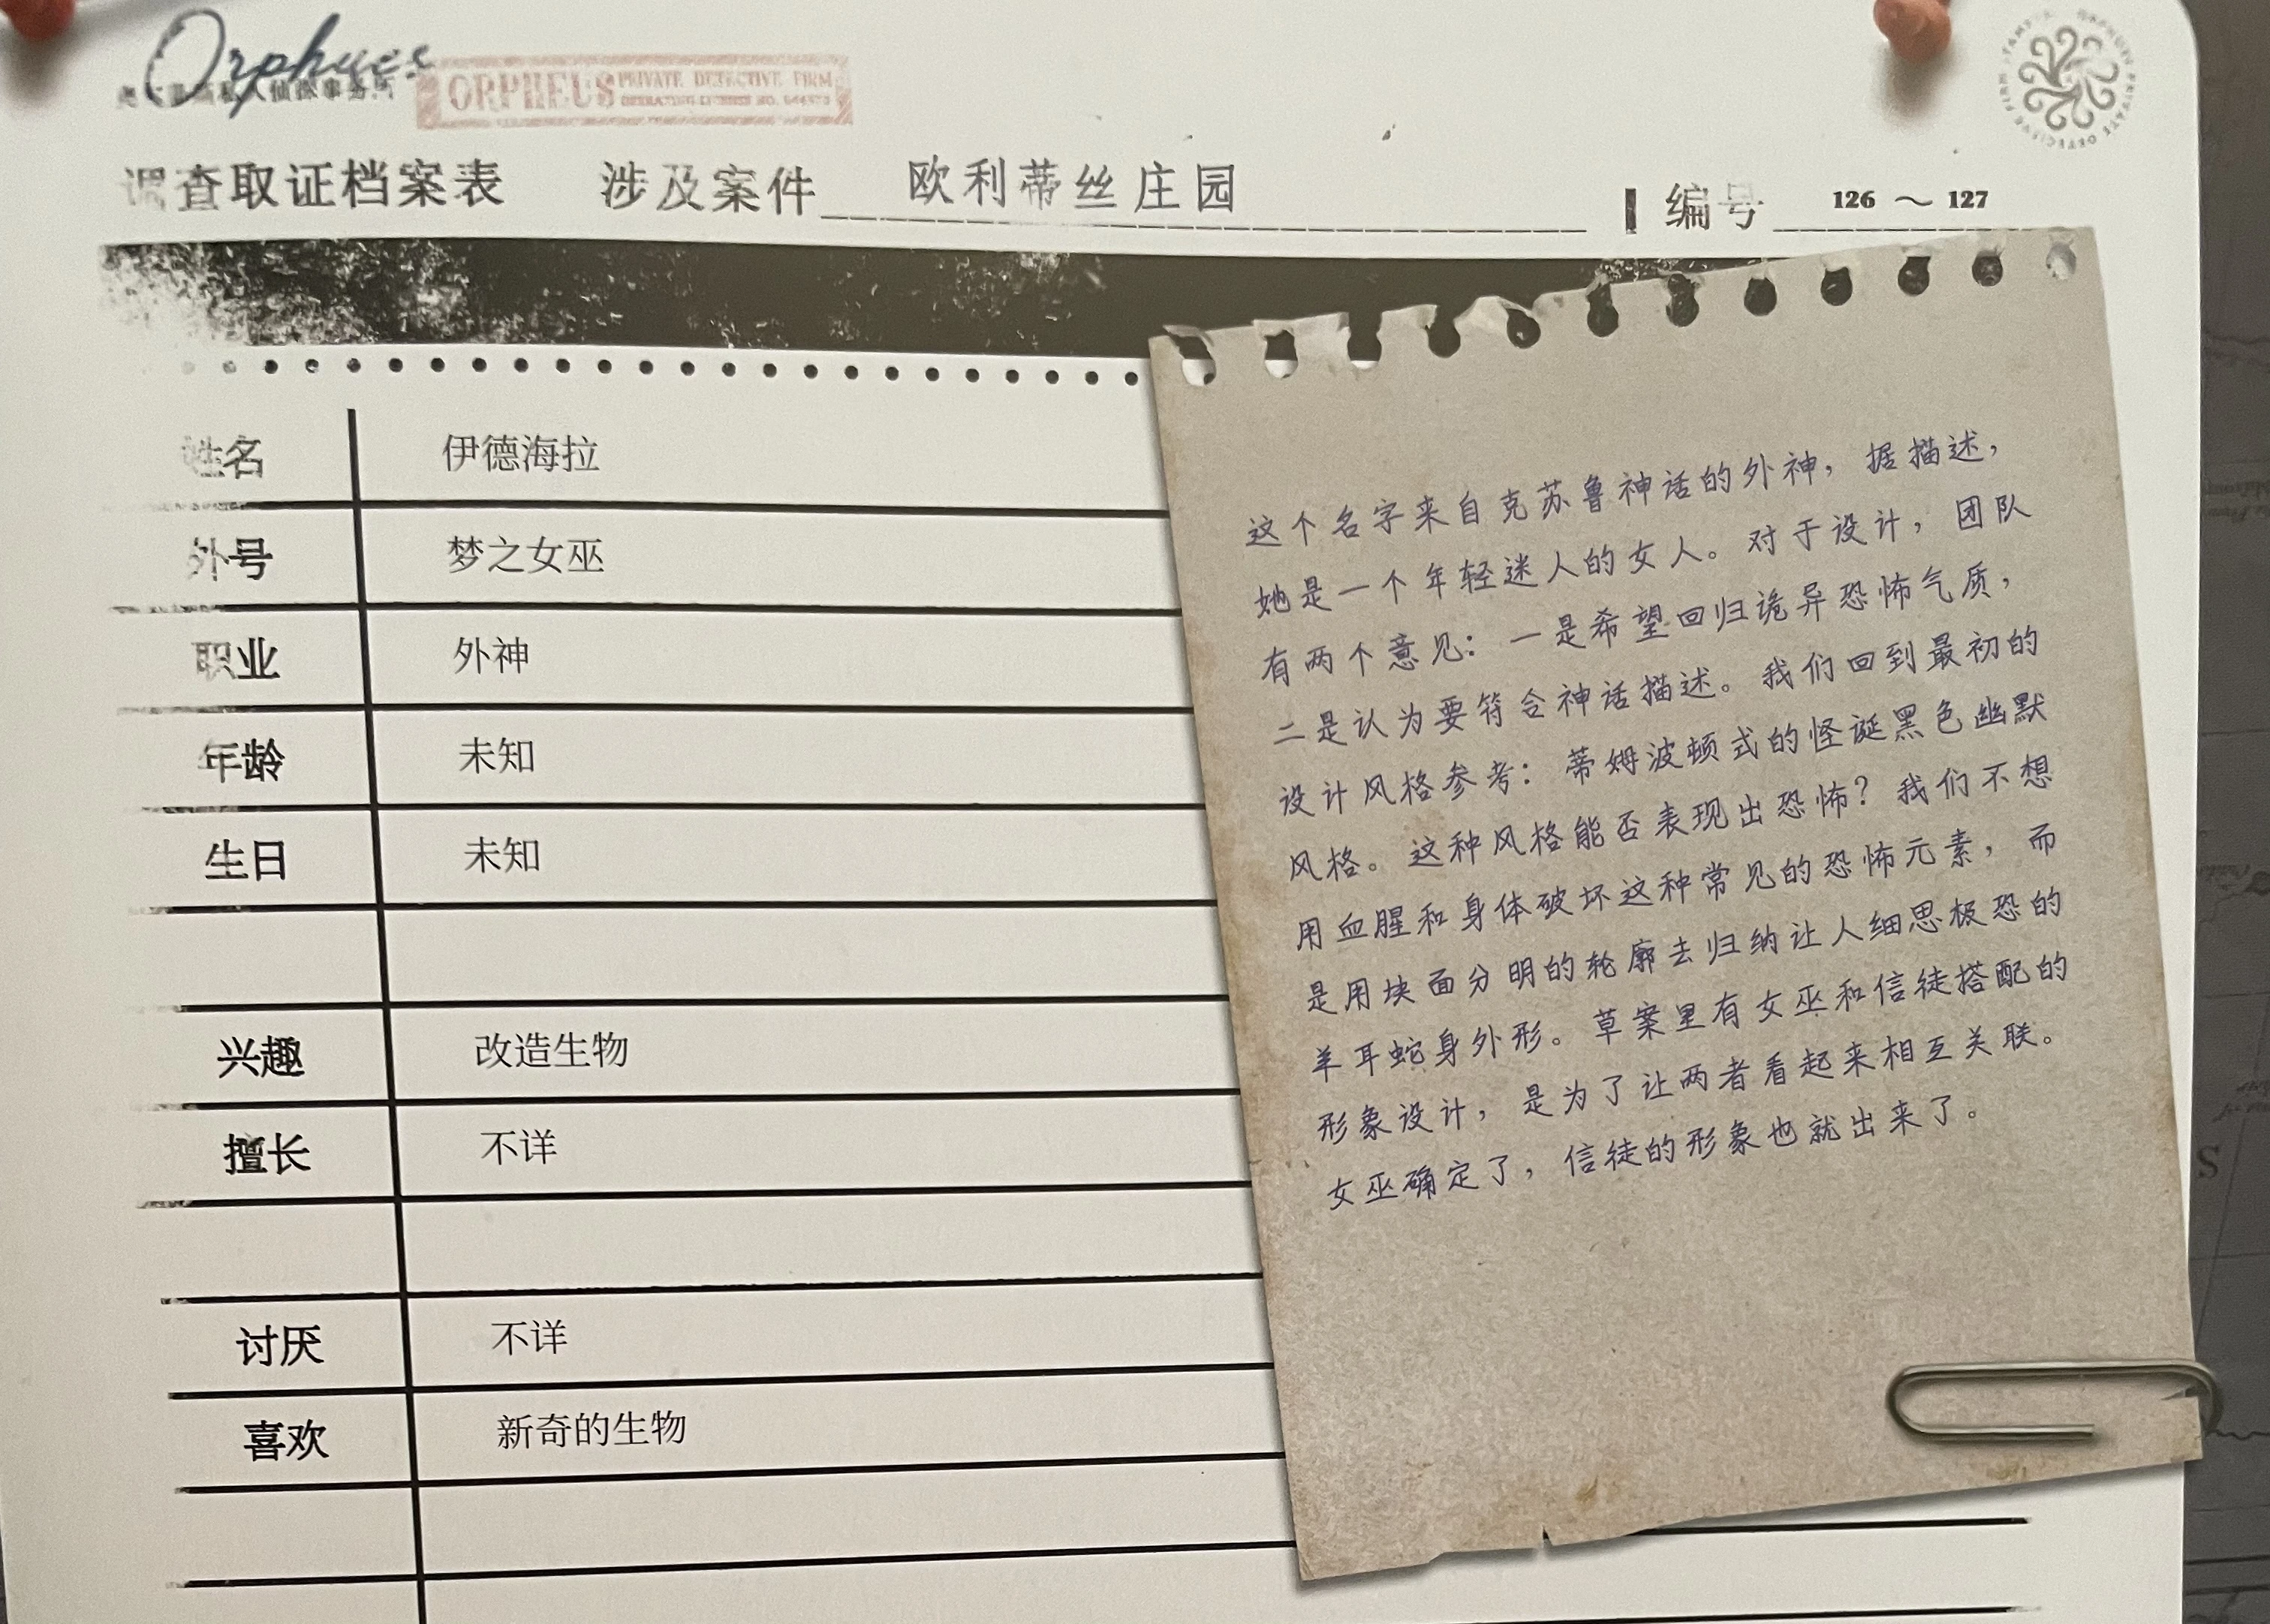 Orpheus
ORPHEUS PRIVATE DETECTIVE FIRM
调查取证档案表 涉及案件 欧利蒂丝庄园 编号 126 ～ 127
姓名 伊德海拉
外号 梦之女巫
职业 外神
年龄 未知
生日 未知
兴趣 改造生物
擅长 不详
讨厌 不详
喜欢 新奇的生物
这个名字来自克苏鲁神话的外神，据描述，
她是一个年轻迷人的女人。对于设计，团队
有两个意见：一是希望回归诡异恐怖气质，
二是认为要符合神话描述。我们回到最初的
设计风格参考：蒂姆波顿式的怪诞黑色幽默
风格。这种风格能否表现出恐怖？我们不想
用血腥和身体破坏这种常见的恐怖元素，而
是用块面分明的轮廓去归纳让人细思极恐的
羊耳蛇身外形。草案里有女巫和信徒搭配的
形象设计，是为了让两者看起来相互关联。
女巫确定了，信徒的形象也就出来了。